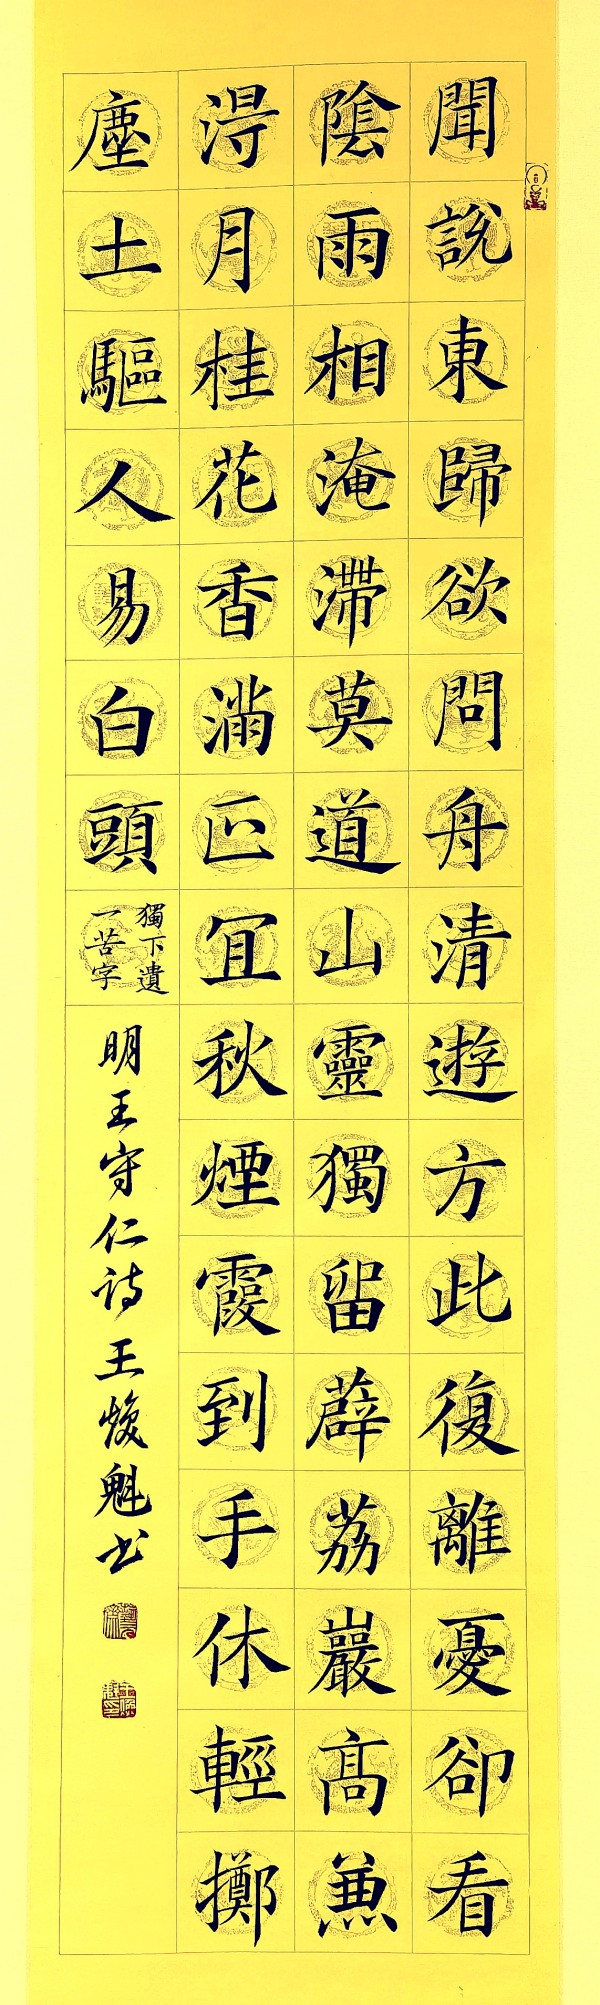 聞說東歸欲問舟清遊方此復離憂卻看
陰雨相淹滯莫道山靈獨留薜荔巖高兼
淂月桂花香滿正宜秋煙霞到手休輕擲
塵土驅人易白頭
獨下遺
一苦字
明王守仁诗王焌魁书